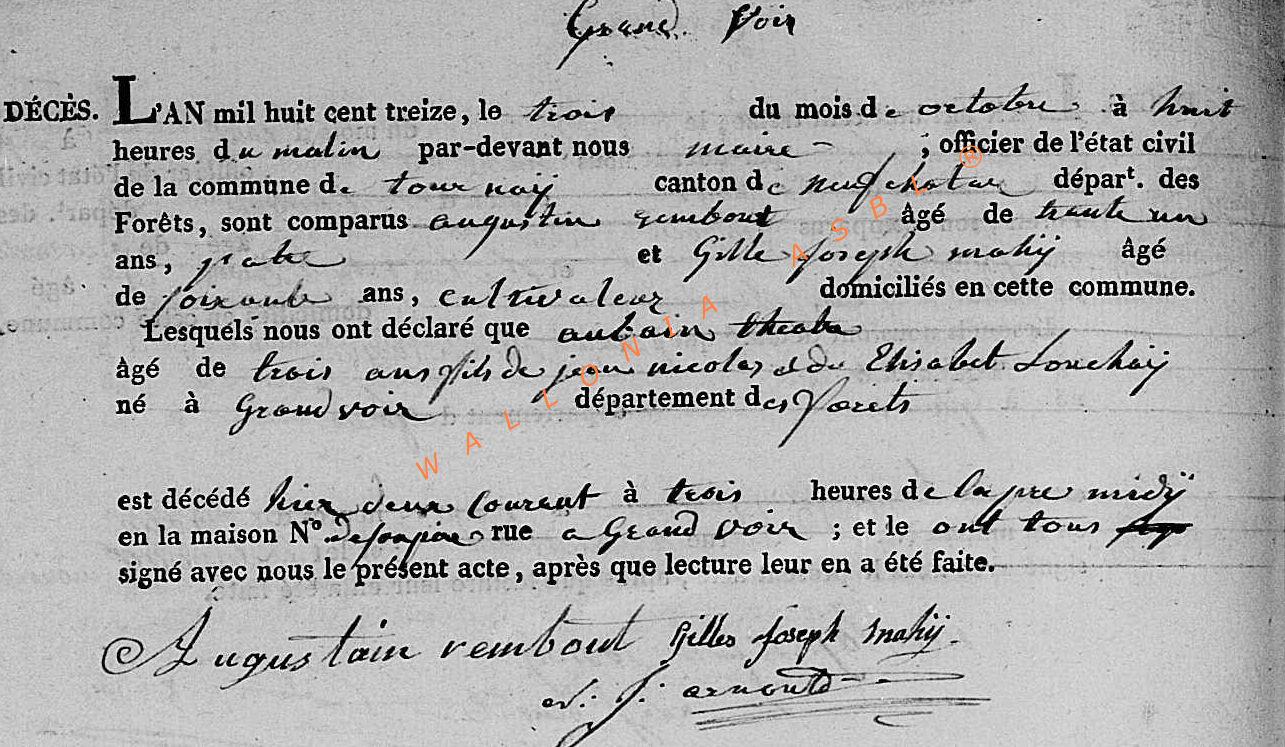 Grand Voir
DÉCÈS. L'AN mil huit cent treize, le trois du mois de octobre à huit
heures du matin par-devant nous maire ; officier de l'état civil
de la commune de tournaÿ canton de neufchatau départ. des
Forêts, sont comparus augustin rembout âgé de trante un
ans, patre et Gille joseph mahÿ âgé
de soixante ans, cultivateur domiciliés en cette commune.
Lesquels nous ont déclaré que aubain
âgé de trois ans fils de jean nicolas et de Elisabet Louchaÿ
né à Grandvoir département des Forêts
est décédé hier deux courent à trois heures de la pre midÿ
en la maison N° de son père rue a Grand voir ; et le ont tous
signé avec nous le présent acte, après que lecture leur en a été faite.
Augustain rembout Gilles Joseph Mahÿ
j. arnould
WALLONIA ASBL ®